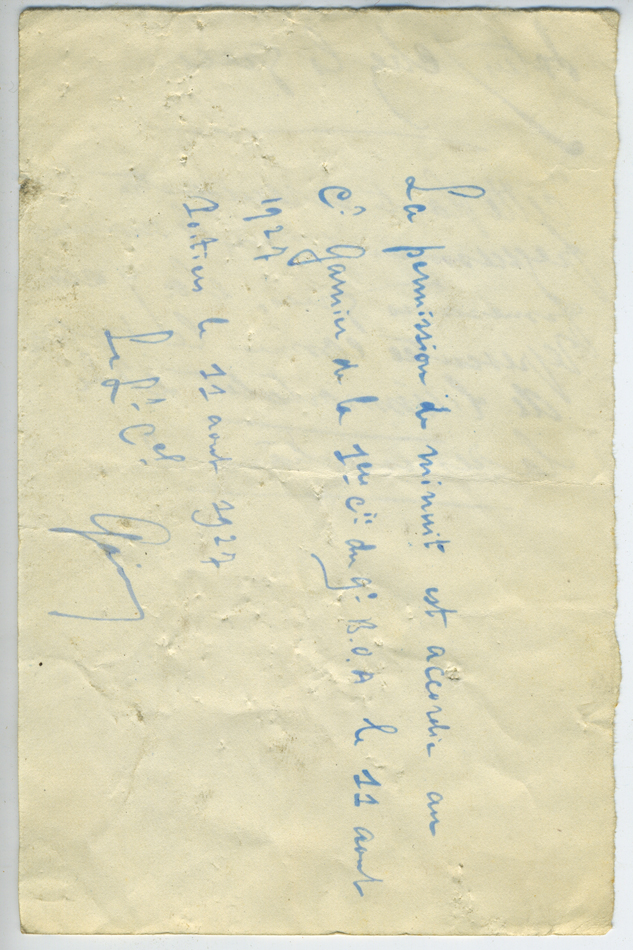 La permission de minuit est accordée au
Ct Garnier de la 1ère Cie du 9e B.O.A. le 11 aout
1927
Poitiers le 11 aout 1927
Le Lt. Cel